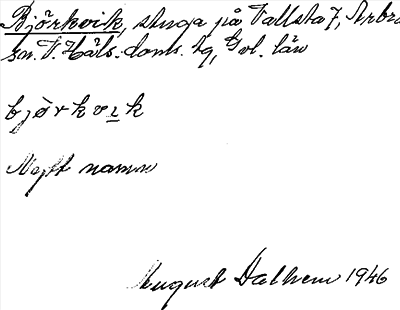 Björkvik, stuga på Vallsta 7, Arbrå
sn. V. Häls. doms. hg, Gvl. län
björkvik
Nytt namn
August Dalhem 1946